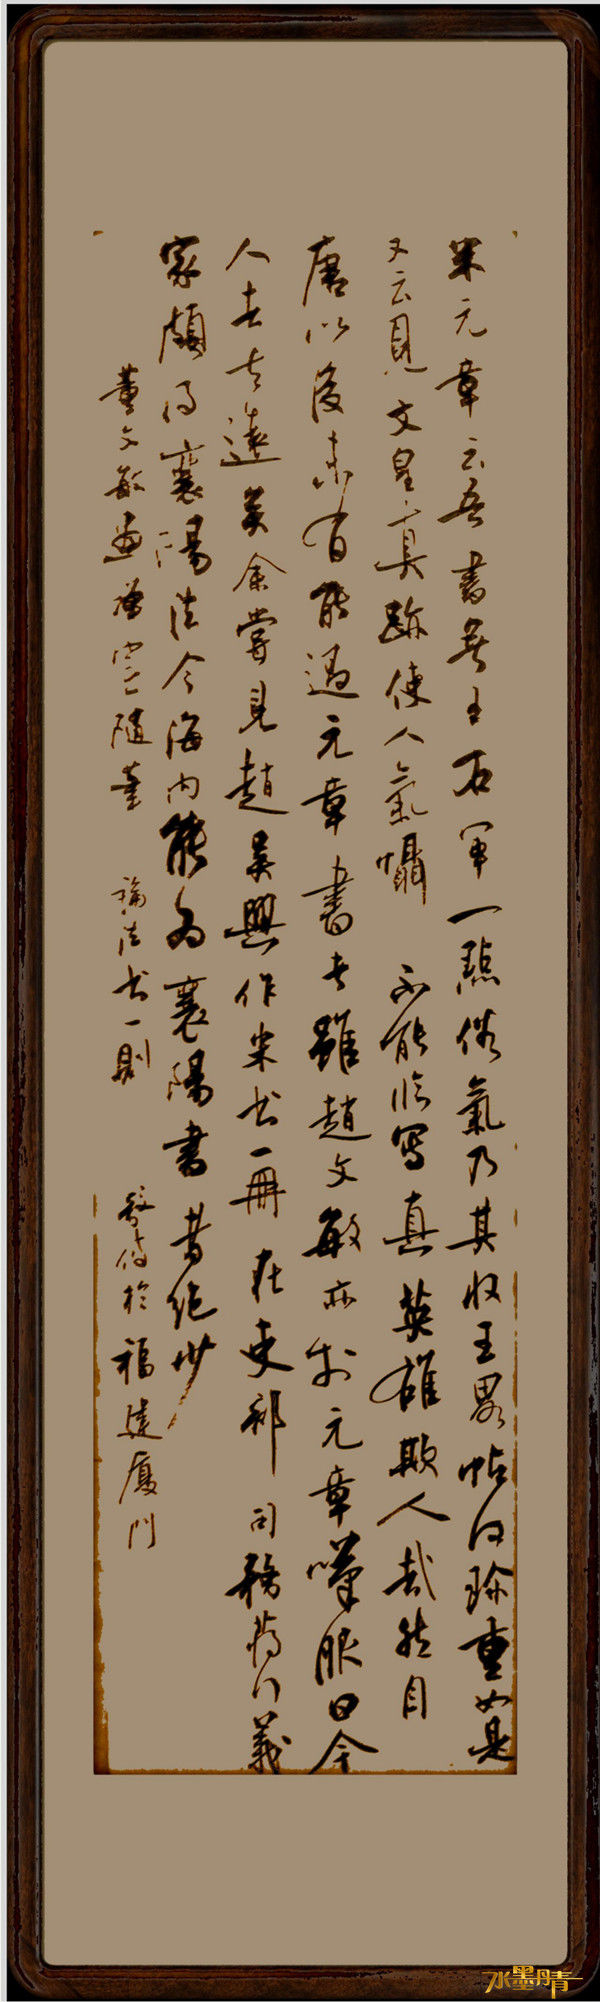 米元章云吾書無王右軍一點俗氣乃其收王畧帖何珍重如是
又云見文皇真跡使人氣懾不能臨寫真英雄欺人哉然自
唐以後未有能過元章書者雖趙文敏亦於元章嘆服曰今
人去古遠矣余嘗見趙吳興作米书一冊在吏部司務蔣行義
家頗得襄陽法今海內能為襄陽書者絕少
董文敏畫禪室隨筆 論法书一則 於福建廈門
水墨丹青